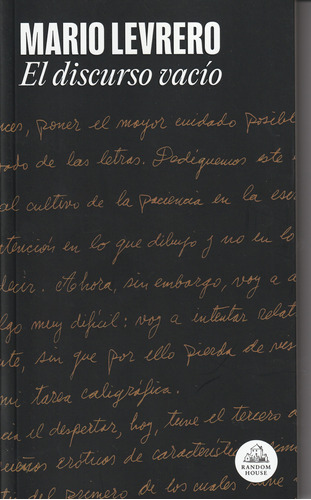 MARIO LEVRERO
El discurso vacío
nces, poner el mayor cuidado posibl
rado de las letras. Dediquemos este
al cultivo de la paciencia en la esc
atención en lo que dibujo y no en lo
decir. Ahora, sin embargo, voy a a
lgo muy difícil: voy a intentar relat
te, sin que por ello pierda de ves
mi tarea caligráfica.
cia el despertar, hoy, tuve el tercero
sueños eróticos de característic sim
del primero de los cuales
RANDOM
HOUSE